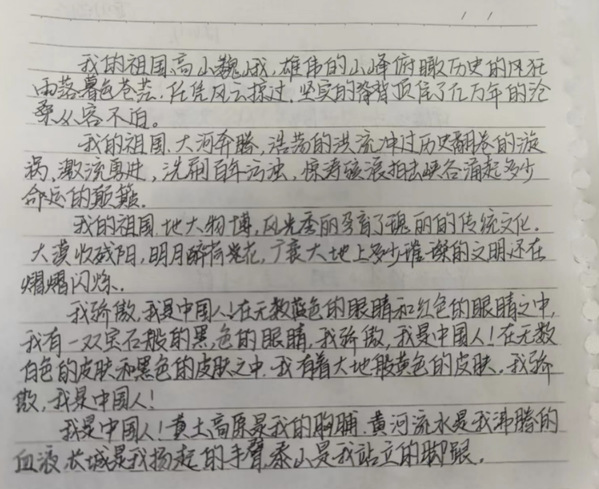 我的祖国,高山巍峨,雄伟的山峰俯瞰历史的风狂
雨落暮色苍茫,任凭风云掠过,坚实的脊背顶住了亿万年的沧
桑从容不迫.
我的祖国.大河奔腾,浩荡的洪流冲过历史翻卷的漩
涡,激流勇进,洗刷百年污浊,惊涛骇浪拍击峡谷涌起多少
命运的颠簸.
我的祖国.地大物博,风光秀丽孕育了瑰丽的传统文化.
大漠收残阳,明月醉荷花,广袤大地上多少璀璨的文明还在
熠熠闪烁.
我骄傲,我是中国人!在无数蓝色的眼睛和红色的眼睛之中,
我有一双宝石般的黑色的眼睛,我骄傲,我是中国人!在无数
白色的皮肤和黑色的皮肤之中.我有着大地般黄色的皮肤,我骄
傲,我是中国人!
我是中国人!黄土高原是我的胸脯,黄河流水是我沸腾的
血液,长城是我扬起的手臂,泰山是我站立的脚跟.